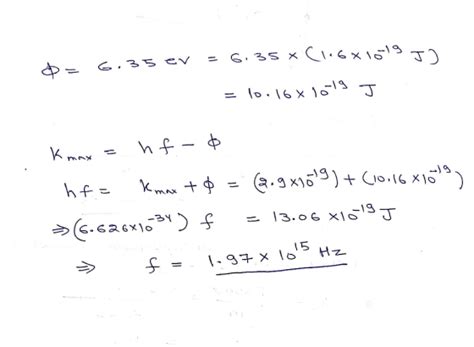 Φ = 6.35 ev = 6.35 × (1.6×10⁻¹⁹ J)
= 10.16×10⁻¹⁹ J
Kmax = hf - Φ
hf = Kmax + Φ = (2.9×10⁻¹⁹) + (10.16×10⁻¹⁹)
⇒ (6.626×10⁻³⁴) f = 13.06 ×10⁻¹⁹ J
⇒ f = 1.97 × 10¹⁵ Hz